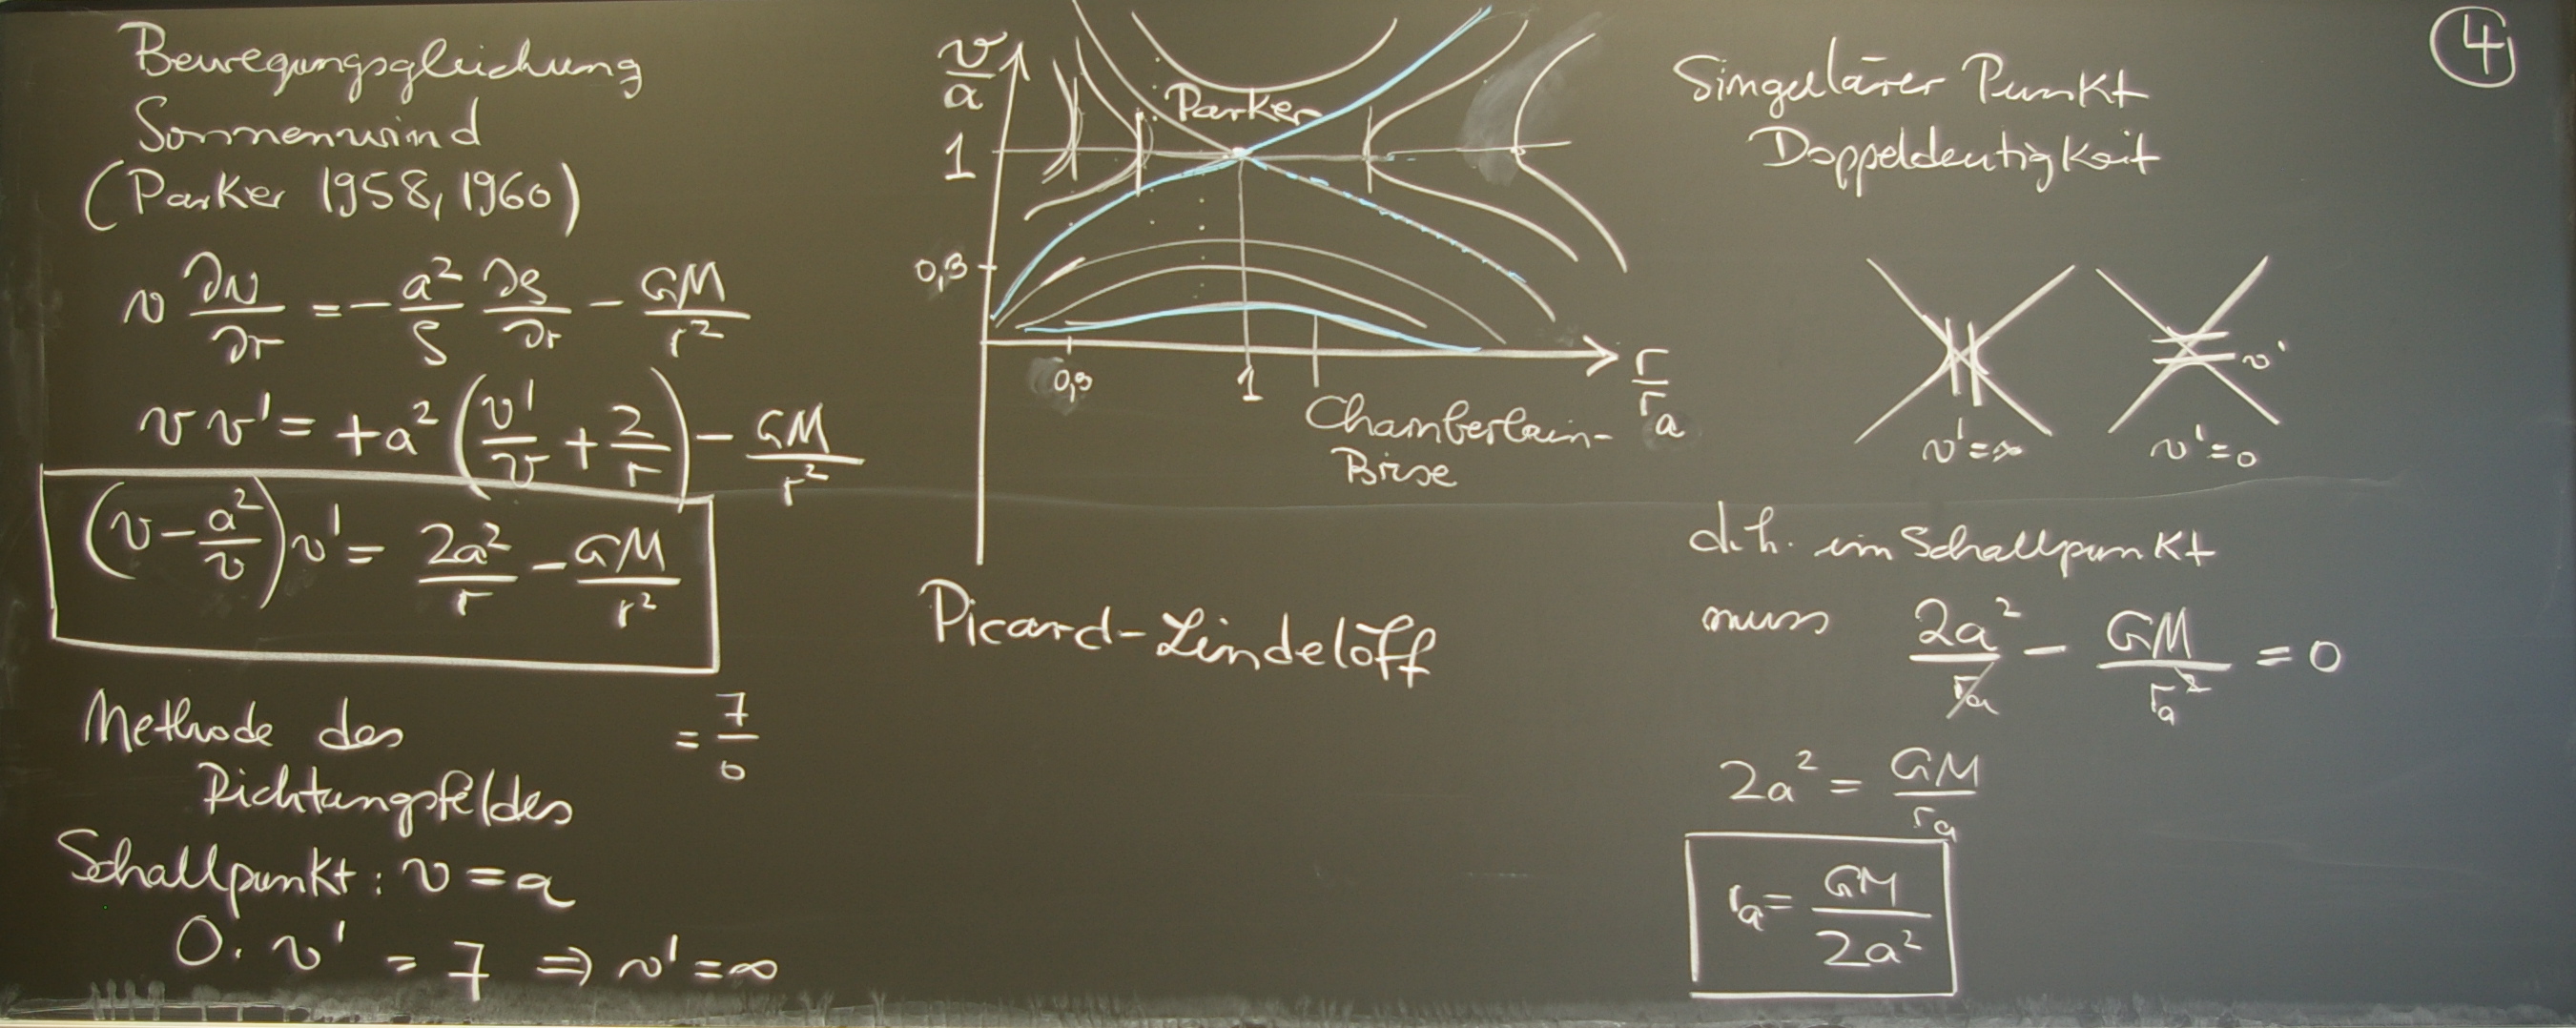 Bewegungsgleichung
Sonnenwind
(Parker 1958, 1960)
v ∂v/∂r = - a²/ρ ∂ρ/∂r - GM/r²
v v' = +a² (v'/v + 2/r) - GM/r²
(v - a²/v) v' = 2a²/r - GM/r²
Methode des = 7/0
Richtungsfeldes
Schallpunkt: v = a
0 · v' = 7 ⇒ v' = ∞
v/a
Parker
1
0,3
0,3 1 r/r_a
Chamberlain-
Brise
Picard-Lindelöff
4
Singulärer Punkt
Doppeldeutigkeit
v'
v' = ∞ v' = 0
d.h. im Schallpunkt
muss 2a²/r_a - GM/r_a² = 0
2a² = GM/r_a
r_a = GM/2a²